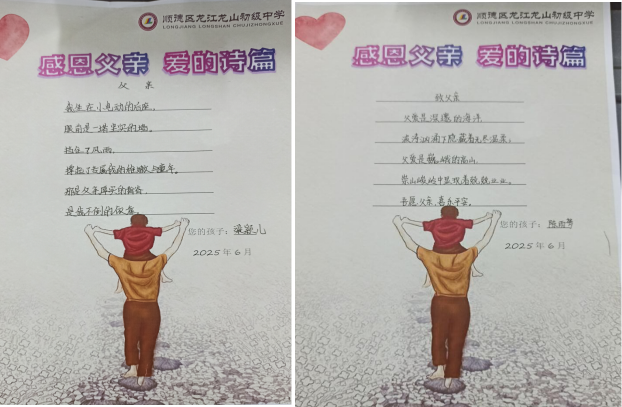 顺德区龙江龙山初级中学
LONGJIANG LONGSHAN CHUJIZHONGXUE
感恩父亲 爱的诗篇
父亲
我坐在小电动的后座，
眼前是一堵坚实的墙。
挡住了风雨，
撑起了专属我的
那是父亲厚实的背脊
是
您的孩子：
2025年6月
顺德区龙江龙山初级中学
LONGJIANG LONGSHAN CHUJIZHONGXUE
感恩父亲 爱的诗篇
致父亲
父爱是深邃的海洋
波涛汹涌下隐藏着无尽温柔；
父爱是巍峨的高山，
崇山峻岭中显现着兢兢业业。
吾愿父亲，喜乐平安。
您的孩子：陈雨
2025年6月